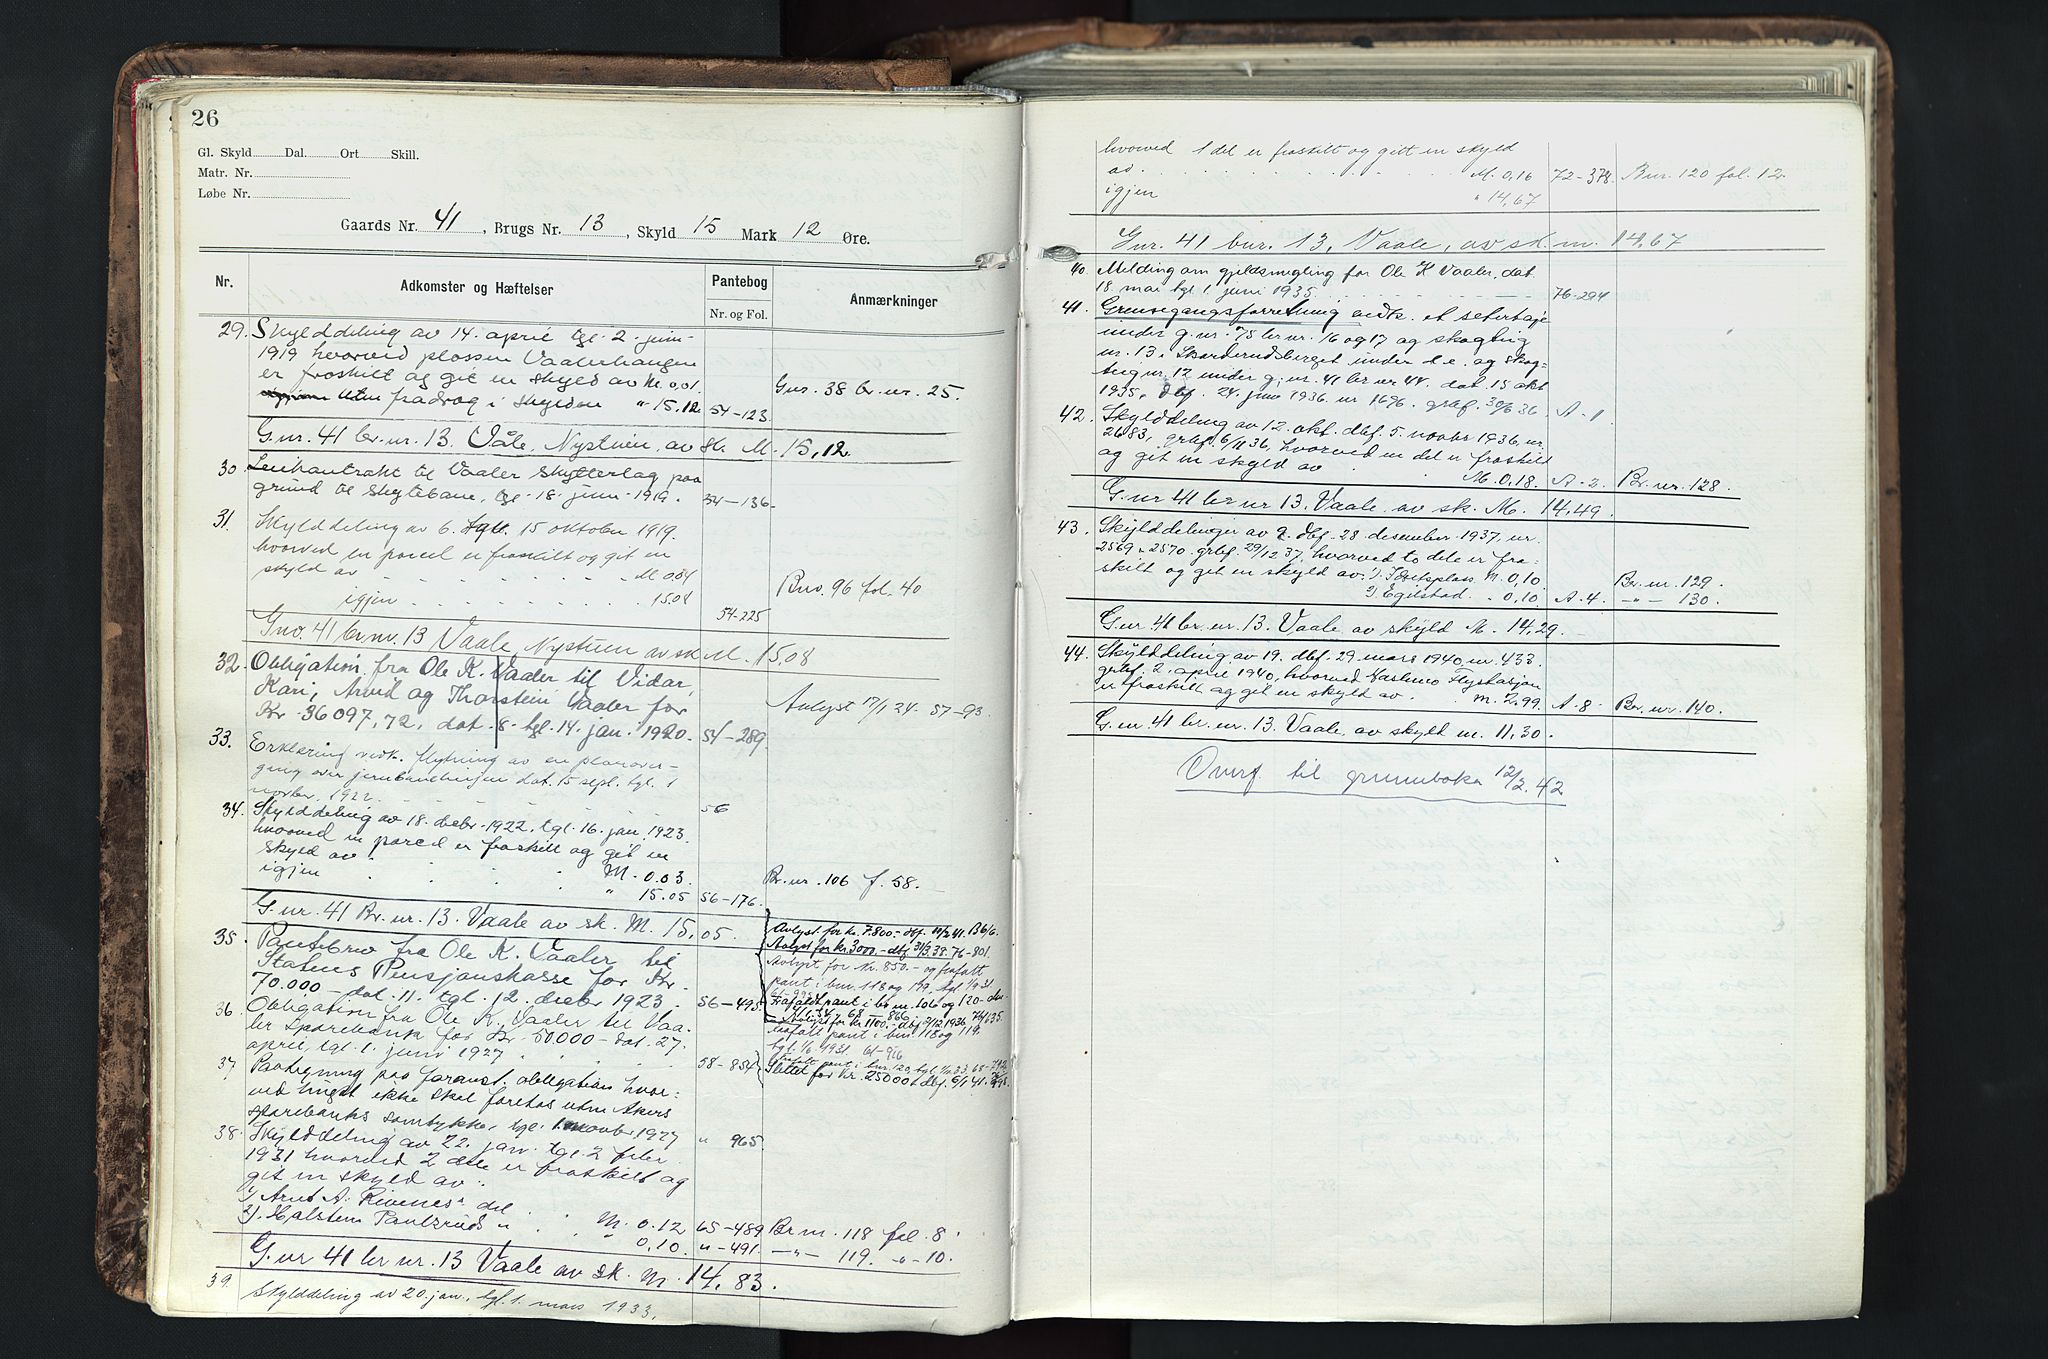 26
Gl. Skyld Dal. Ort Skill.
Matr. Nr.
Løbe Nr.
Gaards Nr. 41, Brugs Nr. 13, Skyld 15 Mark 12 Øre.
Nr. Adkomster og Hæftelser Pantebog Anmærkninger
Nr. og Fol.
29. Skylddeling av 14. april tgl. 2. juni
1919 hvorved plassen Vaalerhaugen
er fraskilt og git en skyld av M. 0,01. Gnr. 38 br. nr. 25.
fradrag i skylden " 15,12 54-123
G. nr. 41 br. nr. 13. Våle, Nystuen, av sk. M. 15,12
30 Leiekontrakt til Vaaler Skytterlag paa
grund til skytebane, tgl. 18. juni 1919. 54-136
31. Skylddeling av 6. tgl. 15 oktober 1919.
hvorved en parcel er fraskilt og git en
skyld av M. 0.04 Bnr. 96 fol. 40
igjen 15.08 54-225
Gnr. 41 br. nr. 13 Vaale Nystuen av sk. M. 15,08
32. Obligation fra Ole K. Vaaler til Vidar,
Kari, Arvid og Thorstein Vaaler for
Kr. 36097,72, dat. 8. tgl. 14. jan. 1920. 54-289 Avlyst 17/1 24. 57-93.
33. Erklæring vedk. flytning av en planover-
gang over jernbanelinjen dat. 15 sept. tgl. 1
novbr. 1922. 56
34. Skylddeling av 18. decbr. 1922, tgl. 16. jan. 1923.
hvorved en parcel er fraskilt og git en
skyld av M. 0.03. Br. nr. 106 f. 58.
igjen " 15.05 56-176.
G. nr. 41 Br. nr. 13. Vaale av sk. M. 15,05.
35. Pantebrev fra Ole K. Vaaler til
Statens Pensjonskasse for Kr.
70.000 - dat. 11. tgl. 12. decbr 1923. 56-495
Avlyst for kr. 7.800.- dbf. 11/2 41. 136/6.
Avlyst for kr 3000.- dbf 31/3.38. 76-801.
Avlyst for kr. 850.- og frafalt
pant i bnr. 118 og 119, tgl. 1/9 31
Frafaldt pant i br. nr. 106 og 120
68-866
Avlyst for kr 1100.- dbf 2/12 1936
36. Obligation fra Ole K. Vaaler til Vaa-
ler Sparebank for Kr. 50.000 - dat. 27.
april, tgl. 1. juni 1927 58-854
frafalt pant i bnr. 118 og 119.
tgl. 1/6 1931 61-916
frafalt pant i bnr. 120
Slettet for kr. 25000 dbf. 6/1 41.
37. Paategning paa foranst. obligation hvor-
ved intet ikke skal foretas uten Akers
sparebanks samtykke, tgl. 1. novbr. 1927 " 965
38. Skylddeling av 22. jan. tgl. 2 febr.
1931 hvorved 2 dele er fraskilt og
git en skyld av:
1) Arnt A. Rivenes' del M. 0.12 65-489 Br nr. 118 fol. 8.
2) Halsten Paulsruds " " 0,10. "-491. -"- 119. " - 10.
G. nr 41 br nr. 13 Vaale av sk. M. 14,83.
39. Skylddeling av 20. jan., tgl. 1. mars 1933.
hvorved 1 del er fraskilt og gitt en skyld
av M. 0,16 72-378. Bnr. 120 fol. 12
igjen " 14,67
Gnr. 41 bnr. 13, Vaale, av sk. m. 14,67
40. Melding om gjeldsmegling for Ole K Vaaler, dat.
18. mai tgl. 1. juni 1935. 76-294
41. Grensegangsforretning vedk. et seterløje
under g. nr. 75 br. nr. 16 og 17 og skogteig
nr. 13 i Skarderudsberget under d. e. og skog-
teig nr. 12 under g. nr. 41 br nr 44. dat. 15 okt
1935, dbf. 24. juni 1936. nr 1696. grbf. 30/6 36. A-1
42. Skylddeling av 12. okt. dbf. 5. novbr 1936, nr.
2683, grbf. 6/11 36, hvorved en del er fraskilt
og git en skyld av M. 0,18. A-2. Br. nr. 128.
G. nr 41 br nr 13. Vaale av sk. M. 14,49.
43. Skylddelinger av 9. dbf. 28. desember 1937, nr.
2569 - 2570. grbf. 29/12 37, hvorved to dele er fra-
skilt og get en skyld av: 1). Idretsplass M. 0,10. Br. nr. 129.
2) Egilstad. " 0,10. A-4. -"- 130.
G. nr. 41 br. nr. 13. Vaale av skyld M. 14,29.
44. Skylddeling av 19. dbf. 29. mars 1940, nr. 433.
grbf. 2. april 1940, hvorved Haslemo Flystasjon
er fraskilt og git en skyld av. m. 2,99. A-8. Br. nr. 140.
G. nr. 41 br. nr. 13. Vaale av skyld m. 11,30.
Overf. til grunnboka 12/2. 42